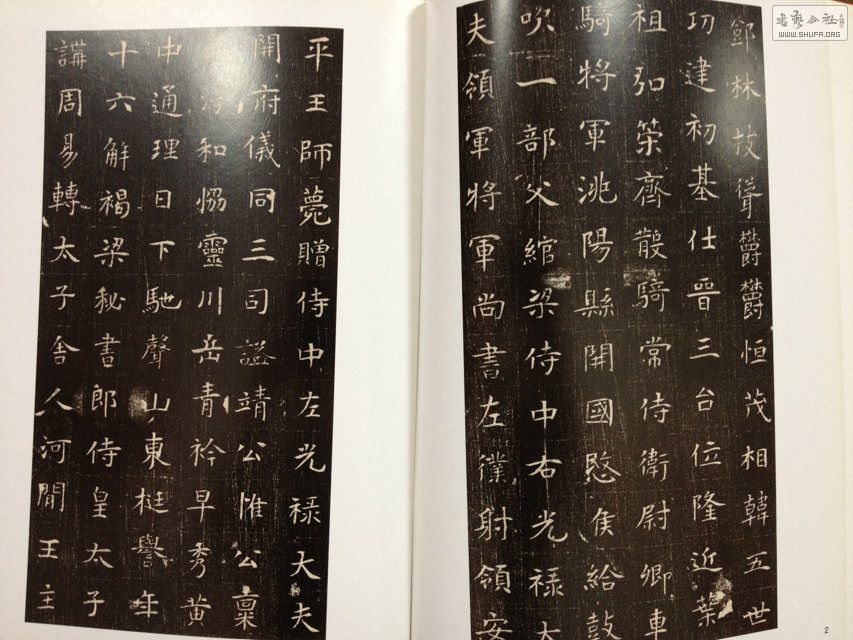 鄧林技聳欝欝恒茂相韓五世
功建初基仕晉三台位隆近葉
祖弘策齊散騎常侍衛尉卿車
騎將軍洮陽縣開國愍侯給鼓
吹一部父綰梁侍中右光禄大
夫領軍將軍尚書左僕射領安
平王師薨贈侍中左光禄大夫
開府儀同三司謚靖公惟公稟
和恊靈川岳青衿早秀黄
中通理日下馳聲山東挺譽年
十六解褐梁秘書郎侍皇太子
講周易轉太子舍人河間王主
2
書藝公社
WWW.SHUFA.ORG